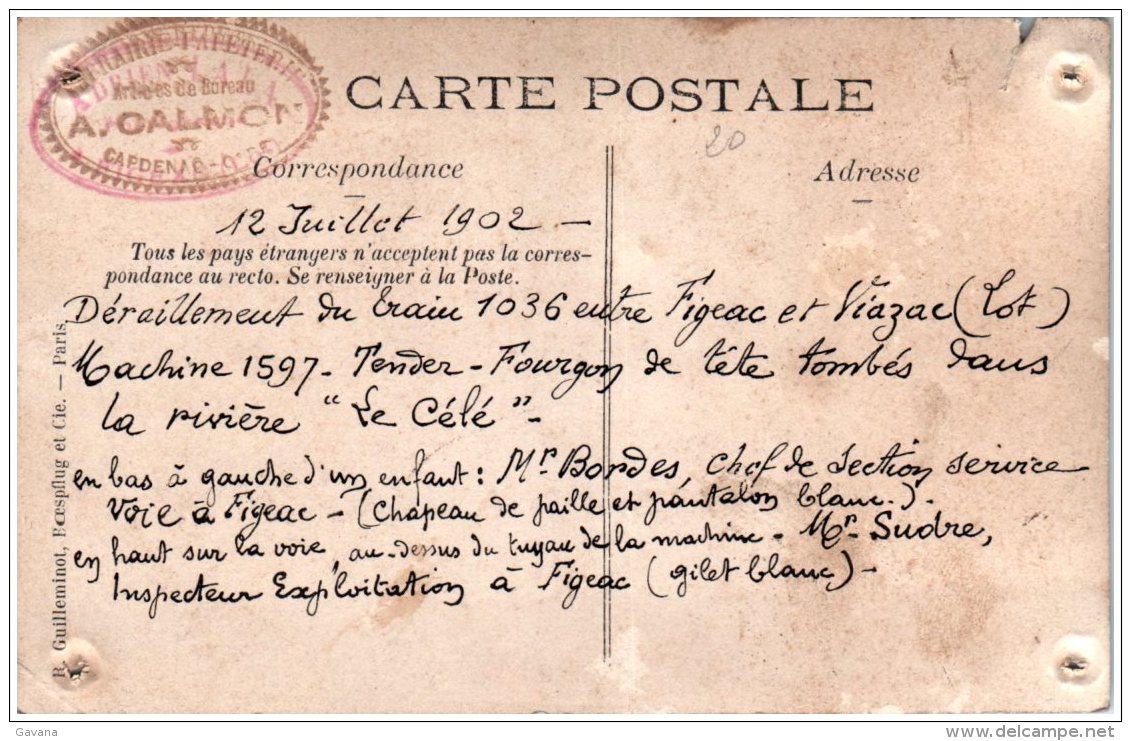 LIBRAIRIE-PAPETERIE
Articles de Bureau
A. CALMON
CAPDENAC
CARTE POSTALE
20
Correspondance
Adresse
12 Juillet 1902 —
Tous les pays étrangers n'acceptent pas la corres-
pondance au recto. Se renseigner à la Poste.
Déraillement du train 1036 entre Figeac et Viazac (Lot)
Machine 1597 - Tender - Fourgon de tête tombés dans
la rivière "Le Célé" -
en bas à gauche d'un enfant : Mr Bordes, chef de section service
Voie à Figeac - (chapeau de paille et pantalon blanc.).
en haut sur la voie, au-dessus du tuyau de la machine - Mr Sudre,
Inspecteur Exploitation à Figeac (gilet blanc) -
R. Guilleminot, Bœspflug et Cie. — Paris.
Gavana
delcampe.net